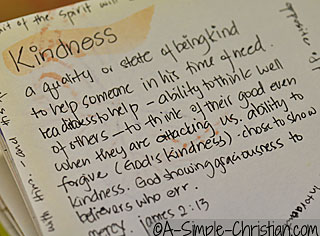 it of the Spirit will
Kindness
a quality or state of being kind
to help someone in his time of need.
readiness to help – ability to think well
of others – to think of their good even
when they are attacking us. ability to
forgive (God's kindness). chose to show
kindness. God showing graciousness to
believers who err.
mercy. james 2:13
©A-Simple-Christian.com